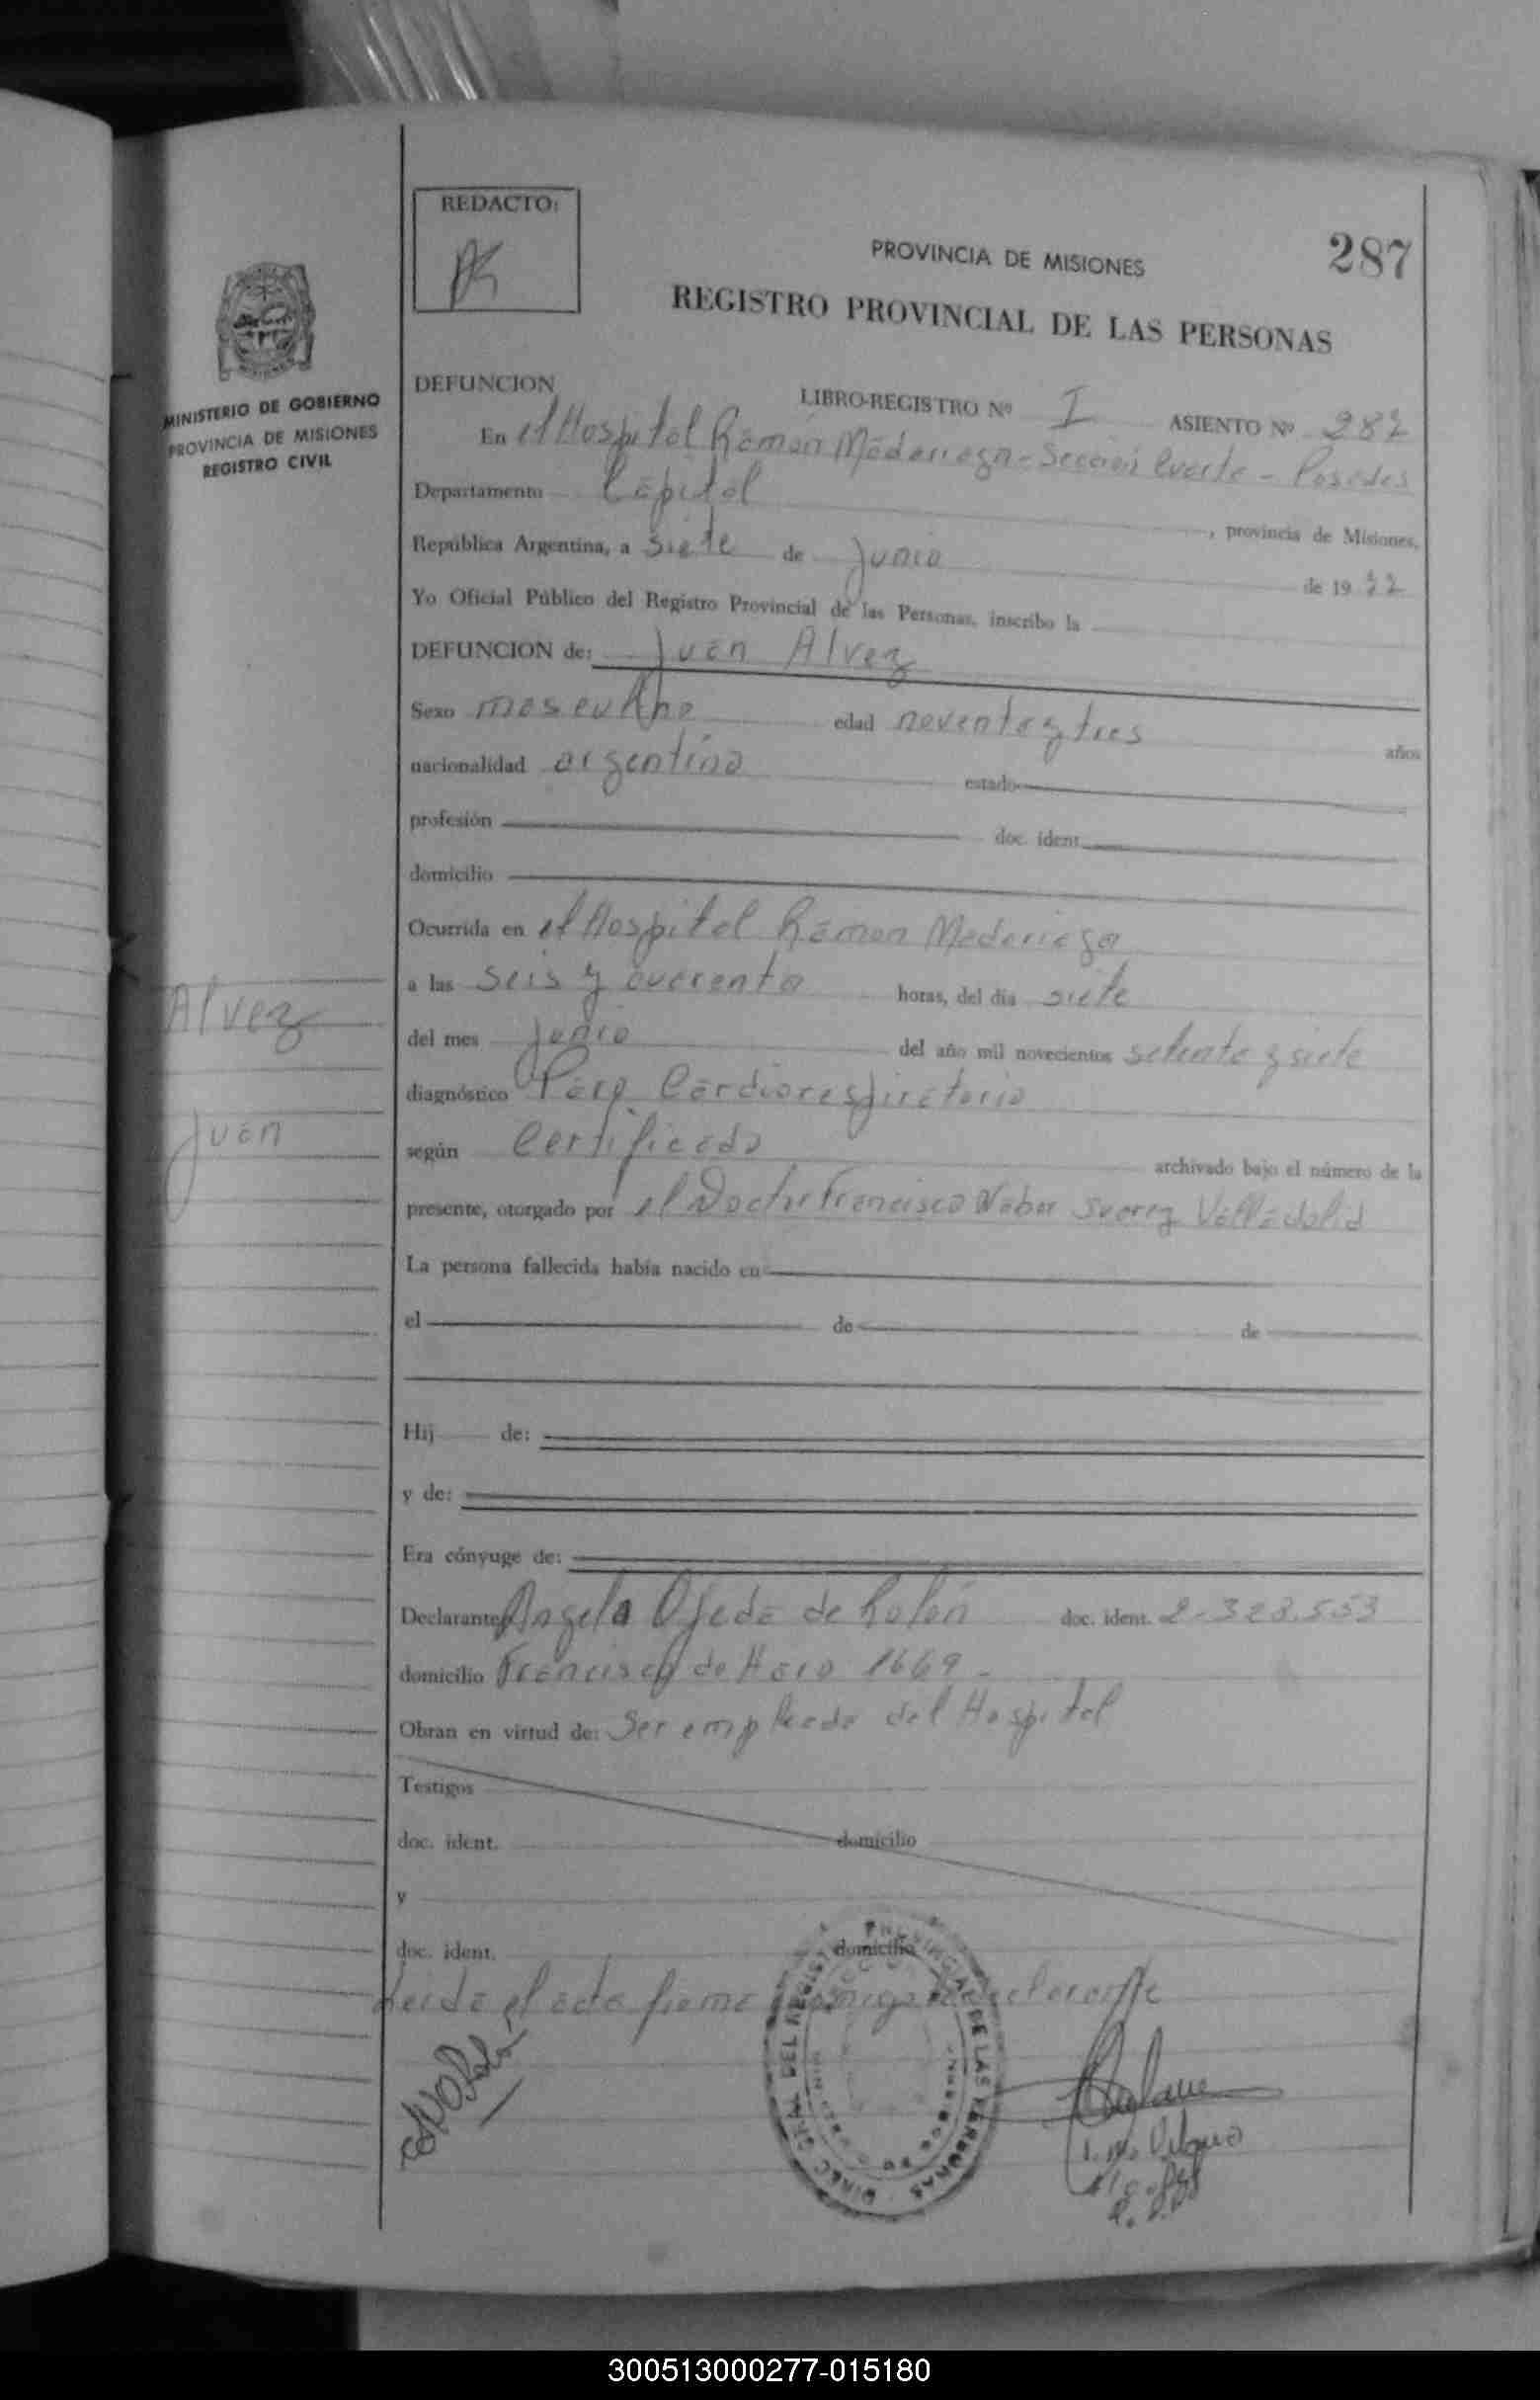 REDACTO:
PROVINCIA DE MISIONES
287
REGISTRO PROVINCIAL DE LAS PERSONAS
MINISTERIO DE GOBIERNO
PROVINCIA DE MISIONES
REGISTRO CIVIL
DEFUNCION
LIBRO-REGISTRO Nº I ASIENTO Nº 287
En el Hospital Ramon Madariaga - Sección Cuarta - Posadas
Departamento Capital, provincia de Misiones,
República Argentina, a siete de junio de 1977
Yo Oficial Público del Registro Provincial de las Personas, inscribo la
DEFUNCION de: Juan Alvez
Sexo masculino edad noventa y tres años
nacionalidad argentina estado
profesión doc. ident.
domicilio
Ocurrida en el Hospital Ramon Madariaga
a las seis y cuarenta horas, del día siete
del mes junio del año mil novecientos setenta y siete
diagnóstico Paro Cardiorespiratorio
según Certificado archivado bajo el número de la
presente, otorgado por el Doctor Francisco Nabor Suarez Valladolid
La persona fallecida había nacido en
el de de
Hij de:
y de:
Era cónyuge de:
Declarante Angela Ojeda de Rolón doc. ident. 2.323.553
domicilio Francisco de Haro 1669
Obran en virtud de: Ser empleada del Hospital
Testigos
doc. ident. domicilio
y
doc. ident. domicilio
Leida el acta firma conmigo la declarante
Alvez
Juan
DIREC. GRAL. DEL REGISTRO PROVINCIAL DE LAS PERSONAS
300513000277-015180